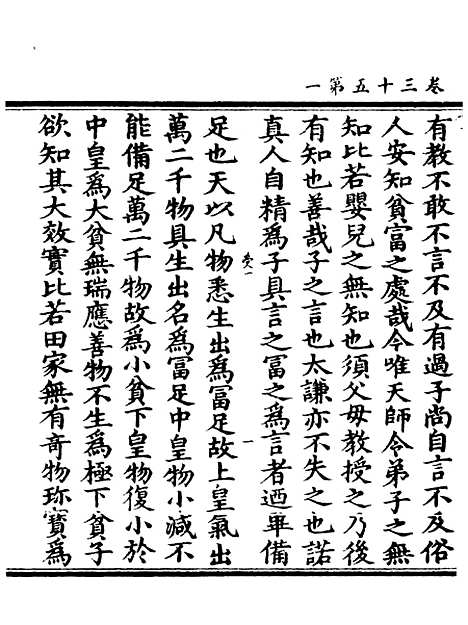 卷三十五第一
有教不敢不言不及有過子尚自言不及俗
人安知貧富之處哉今唯天師令弟子之無
知比若嬰兒之無知也須父母教授之乃後
有知也善哉子之言也太謙亦不失之也諾
真人自精為子具言之冨之為言者迺畢備
受一 一
足也天以凡物悉生出為冨足故上皇氣出
萬二千物具生出名為冨足中皇物小減不
能備足萬二千物故為小貧下皇物復小於
中皇為大貧無瑞應善物不生為極下貧子
欲知其大效實比若田家無有奇物珎寳為